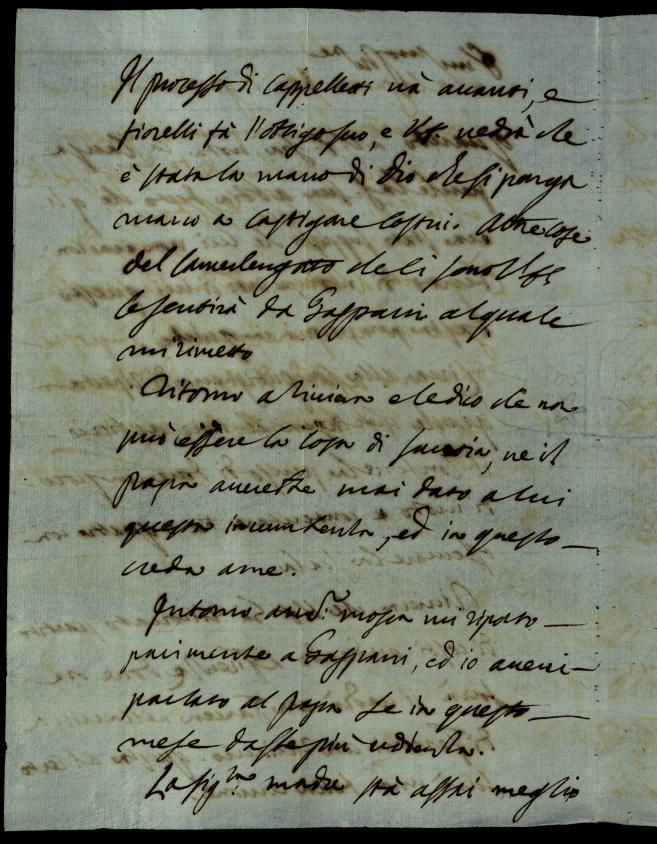 Il processo di Cappelletti và avanti, e
fiorelli fà l'obligo suo, e V.S. vedrà che
è stata la mano di Dio che si porga
mano a castigare costui. Altre cose
del Camerlengato che li sono
le sentirà da Gasparri al quale
mi rimetto
Ritorno a e le dico che non
può essere la cosa di Savoia, ne il
papa averebbe mai dato a lui
questa incumbenza, ed in questo
creda a me.
Intorno a mosca mi riporto
parimente a Gasparri, ed io averei
parlato al Papa se in questo
mese dasse più udienza.
La sig.ra madre stà assai meglio